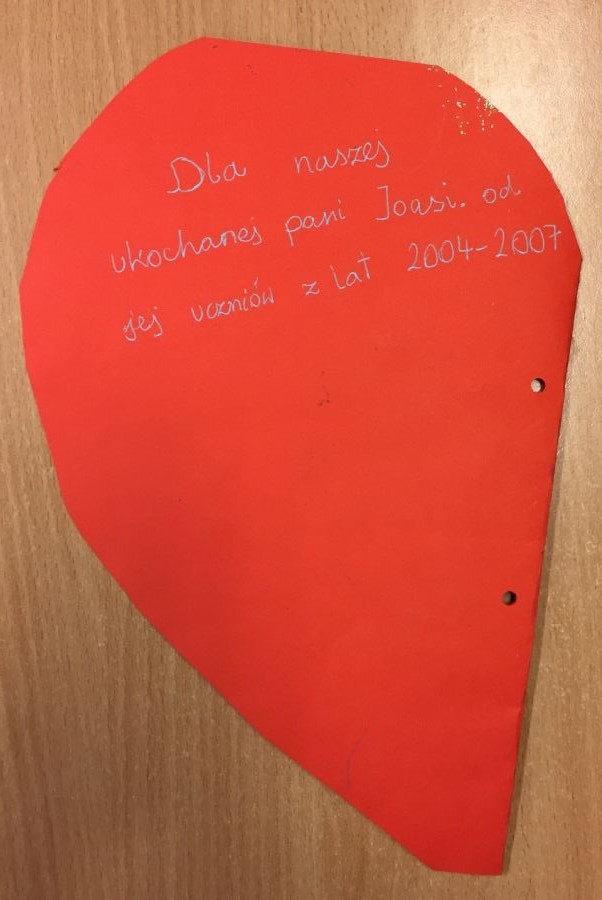 Dla naszej
ukochanej pani Joasi. od
jej uczniów z lat 2004-2007